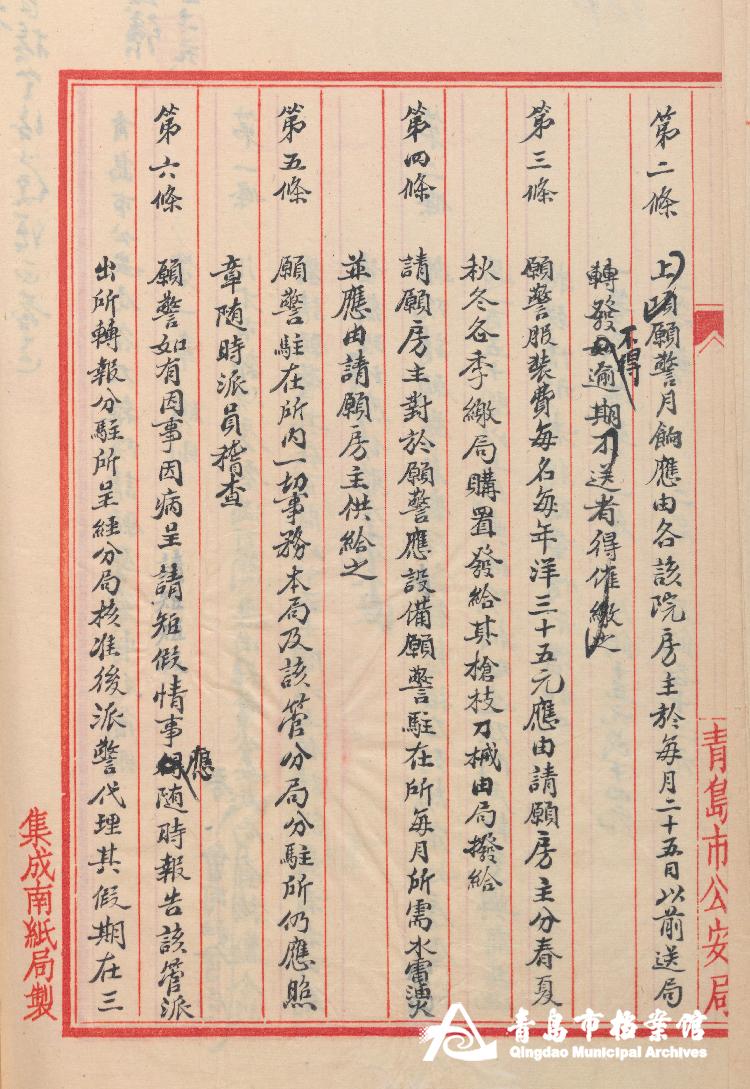 第二條　上項願警月餉應由各該院房主於每月二十五日以前送局
轉發如不得逾期不送者得催繳之
第三條　願警服裝費每名每年洋三十五元應由請願房主分春夏
秋冬各季繳局購置發給其槍枝刀械由局撥給
第四條　請願房主對於願警應設備願警駐在所每月所需水電煤火
並應由請願房主供給之
第五條　願警駐在所內一切事務本局及該管分局分駐所仍應照
章隨時派員稽查
第六條　願警如有因事因病呈請短假情事得應隨時報告該管派
出所轉報分駐所呈經分局核准後派警代理其假期在三
青島市公安局
集成南紙局製
青島市檔案館
Qingdao Municipal Archives